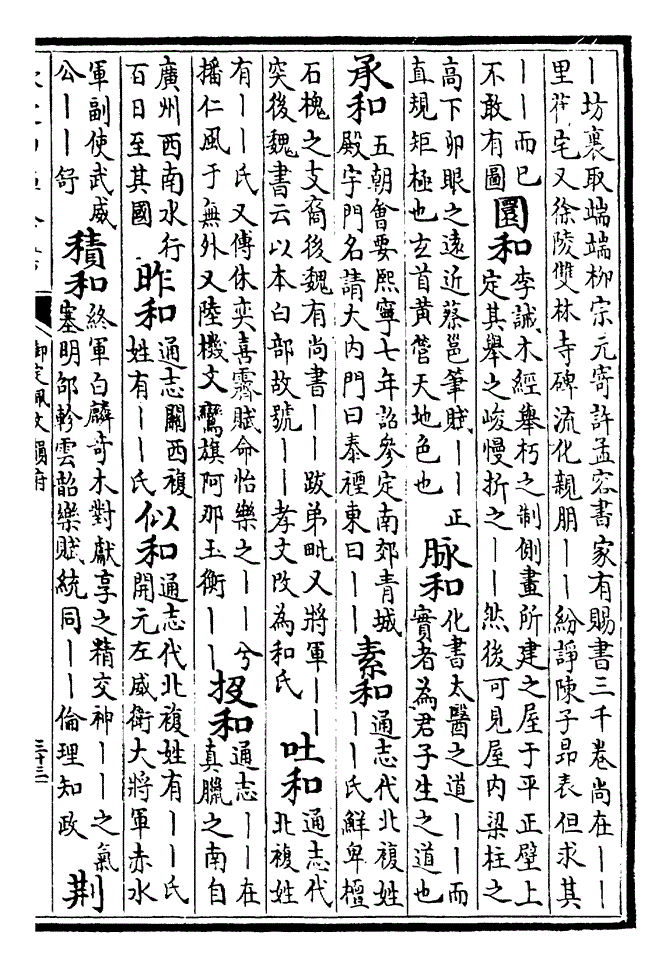 ｜坊裏取端端栁宗元寄許孟容書家有賜書三千卷尚在｜｜
里莊宅又徐陵雙林寺碑流化親朋｜｜紛諍陳子昂表但求其
｜｜而已
不敢有圖
圜和
李誡木經舉朽之制側畫所建之屋于平正壁上
定其舉之峻慢折之｜｜然後可見屋内梁柱之
高下卯眼之遠近蔡邕筆賦｜｜正
直規矩極也玄首黄管天地色也
脉和
化書太醫之道｜｜而
實者為君子生之道也
承和
五朝會要熙寧七年詔参定南郊青城
殿字門名請大内門曰泰禋東曰｜｜
素和
通志代北複姓
｜｜氏鮮卑檀
石槐之支裔後魏有尚書｜｜跋弟毗又將軍｜｜
突後魏書云以本白部故號｜｜孝文改為和氏
吐和
通志代
北複姓
有｜｜氏又傅休奕喜霽賦命怡樂之｜｜兮
播仁風于無外又陸機文鸞旗阿那玉衡｜｜
投和
通志｜｜在
真臘之南自
廣州西南水行
百日至其國
昨和
通志關西複
姓有｜｜氏
似和
通志代北複姓有｜｜氏
開元左威衛大將軍赤水
軍副使武威
公｜｜舒
積和
終軍白麟奇木對獻享之精交神｜｜之氣
塞明邵軫雲韶樂賦統同｜｜倫理知政
荆
御定佩文韻府
三十三